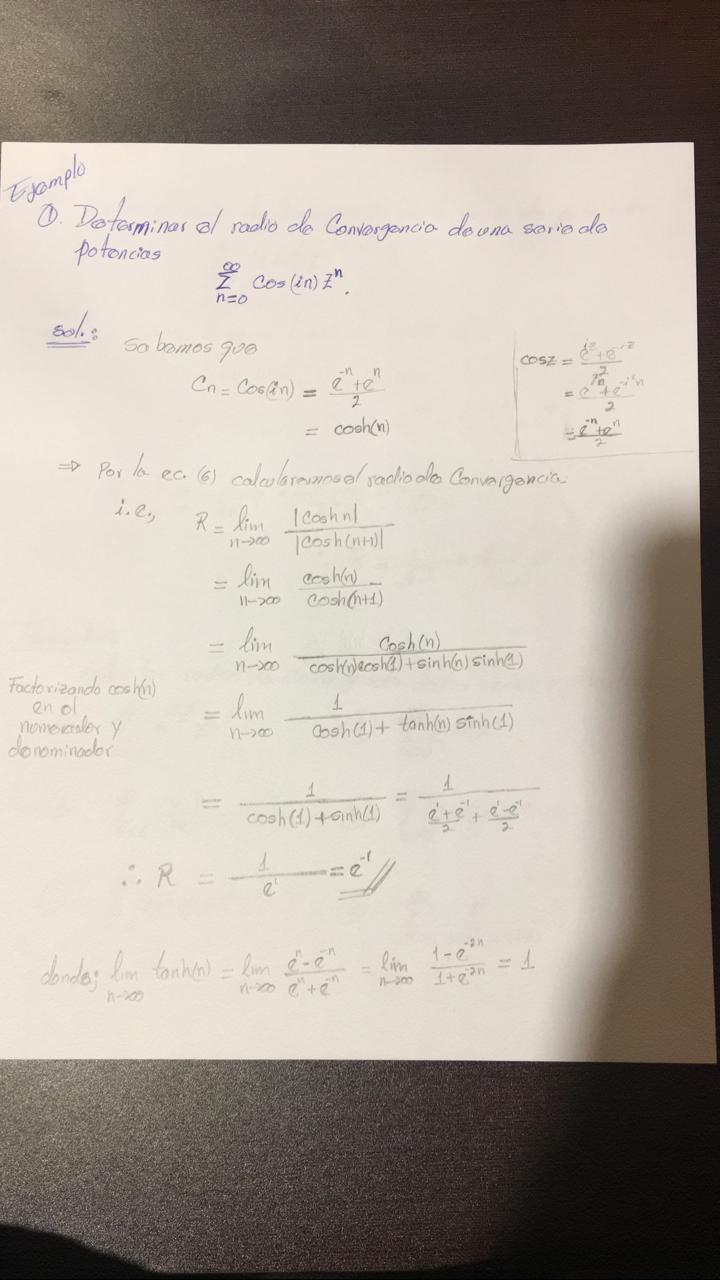 Ejemplo
①. Determinar el radio de Convergencia de una serie de
potencias
∑_{n=0}^{∞} Cos(in) z^n.
sol.:
Sabemos que
C_n = Cos(in) = (e^{-n} + e^{n})/2
= cosh(n)
cos z = (e^{iz} + e^{-iz})/2
= (e^{i²n} + e^{-i²n})/2
= (e^{-n} + e^{n})/2
⇒ Por la ec. (6) calcularemos el radio de Convergencia
i.e.,
R = lim_{n→∞} |cosh n| / |cosh(n+1)|
= lim_{n→∞} cosh(n) / cosh(n+1)
= lim_{n→∞} Cosh(n) / (cosh(n)cosh(1) + sinh(n) sinh(1))
Factorizando cosh(n)
en el
numerador y
denominador
= lim_{n→∞} 1 / (cosh(1) + tanh(n) sinh(1))
= 1 / (cosh(1) + sinh(1)) = 1 / ((e^{1} + e^{-1})/2 + (e^{1} - e^{-1})/2)
∴ R = 1/e^{1} = e^{-1} //
donde; lim_{n→∞} tanh(n) = lim_{n→∞} (e^{n} - e^{-n})/(e^{n} + e^{-n}) = lim_{n→∞} (1 - e^{-2n})/(1 + e^{-2n}) = 1